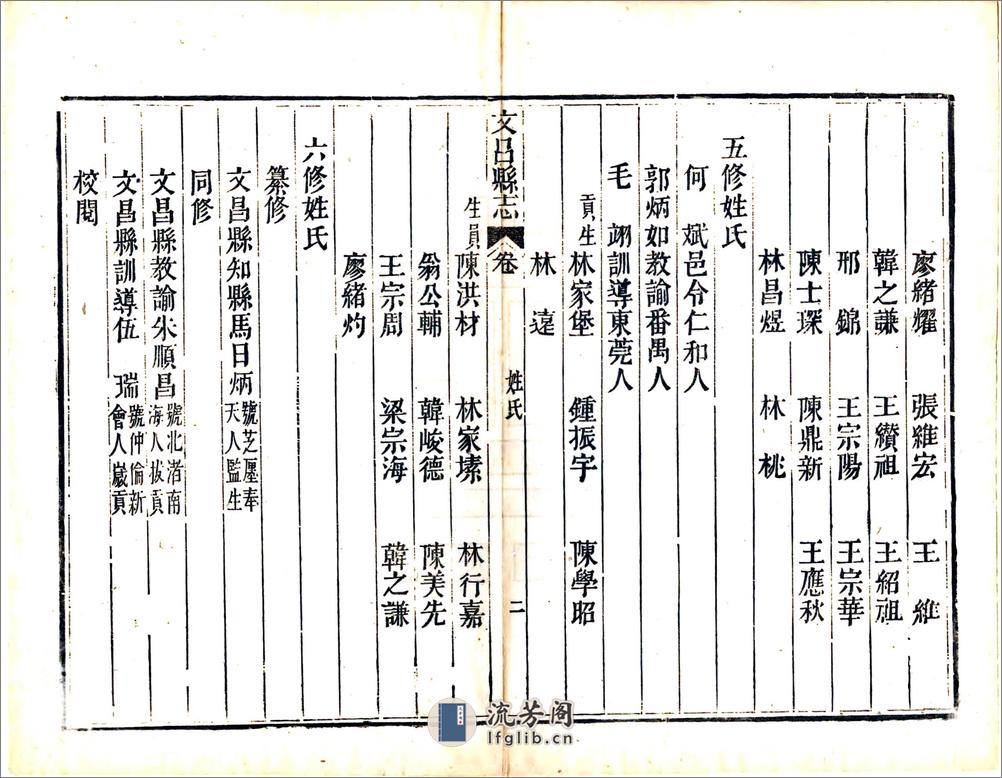 廖緒耀 張維宏 王 維
韓之謙 王纘祖 王紹祖
邢 錦 王宗陽 王宗華
陳士琛 陳鼎新 王應秋
林昌煜 林 桃
五修姓氏
何 斌邑令仁和人
郭炳如教諭番禺人
毛 翊訓導東莞人
貢生林家堡 鍾振宇 陳學昭
林 遠
文昌縣志 卷 姓氏 二
生員陳洪材 林家㙇 林行嘉
翁公輔 韓峻德 陳美先
王宗周 梁宗海 韓之謙
廖緒灼
六修姓氏
纂修
文昌縣知縣馬日炳號芝厘奉天人監生
同修
文昌縣教諭朱順昌號北渚南海人拔貢
文昌縣訓導伍 瑞號仲倫新會人歲貢
校閱
流芳阁
lfglib.cn